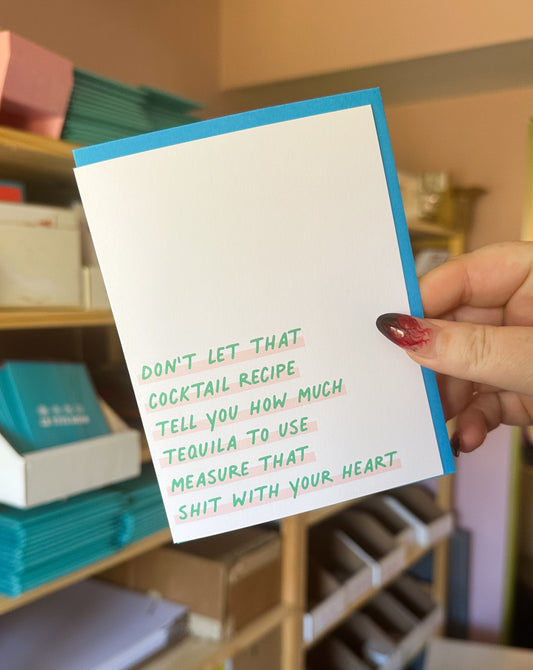 DON'T LET THAT
COCKTAIL RECIPE
TELL YOU HOW MUCH
TEQUILA TO USE
MEASURE THAT
SHIT WITH YOUR HEART